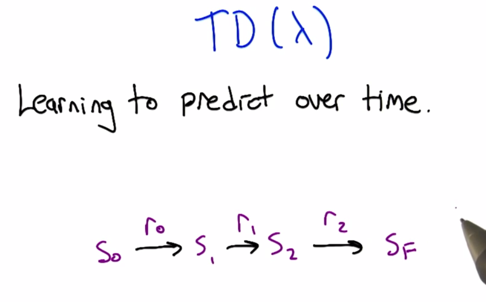 TD(λ)
Learning to predict over time.
S₀ →r₀ S₁ →r₁ S₂ →r₂ S_F